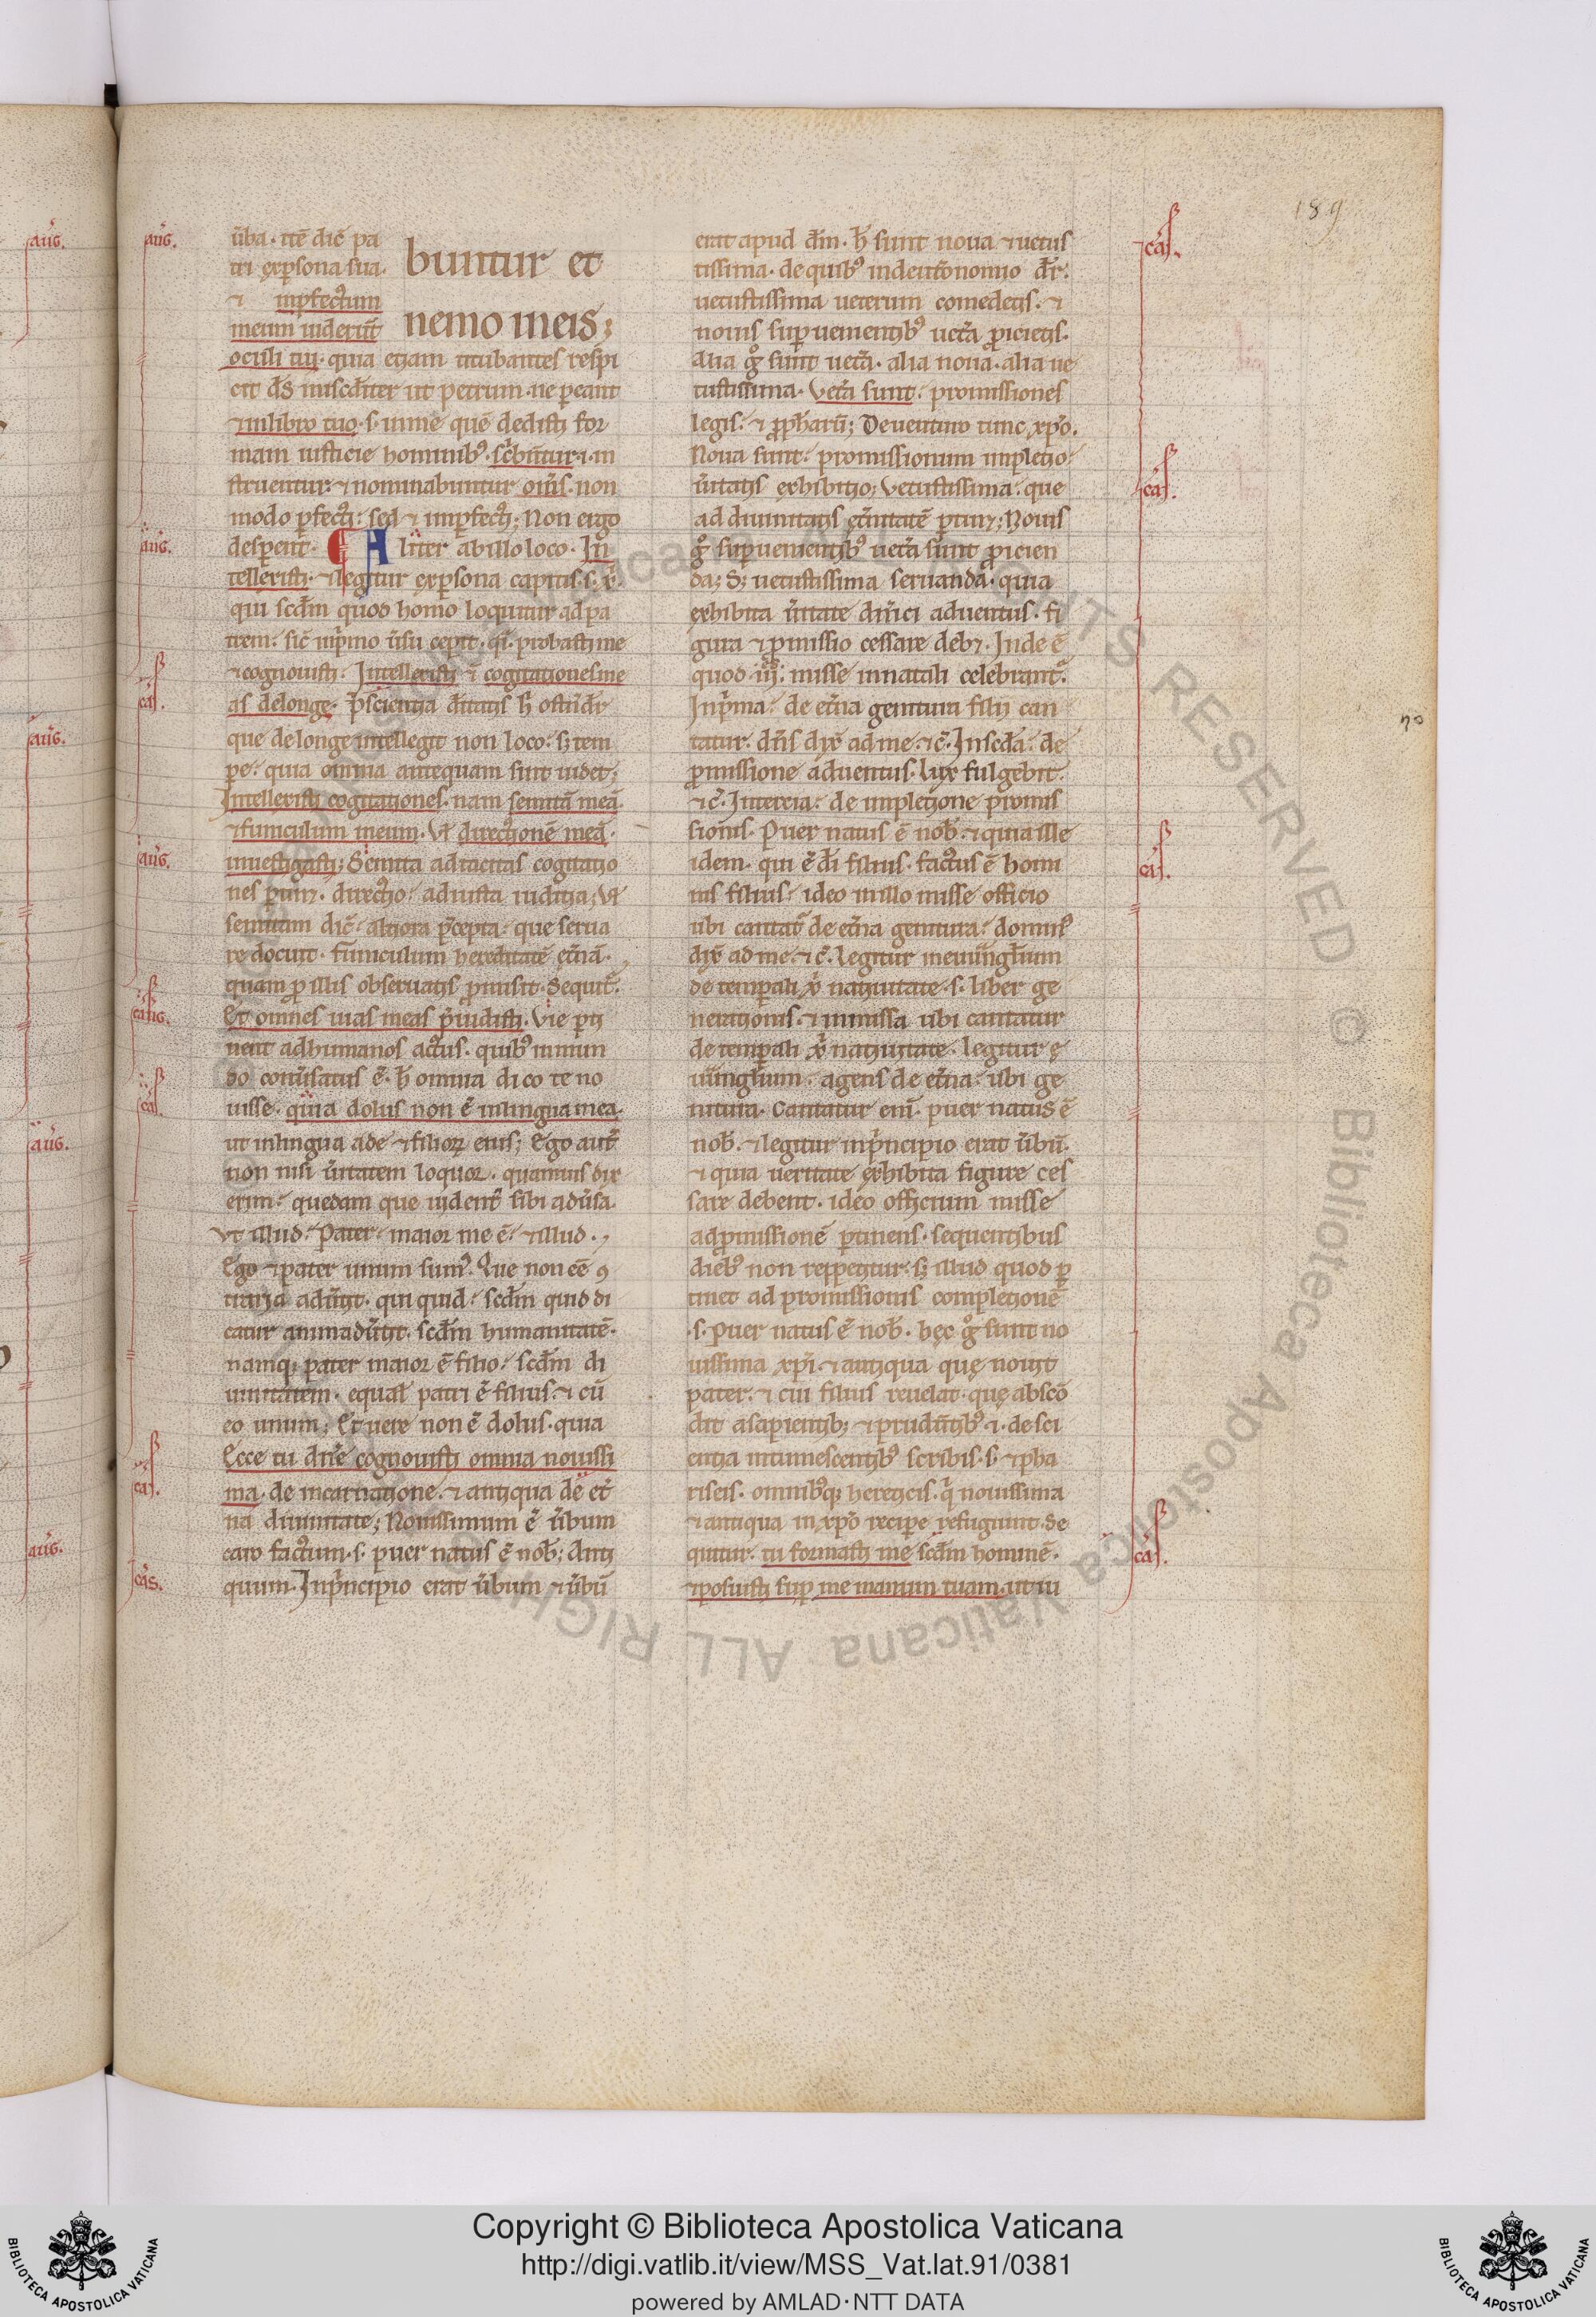 189
ũba · itē dic̄ pa
tri exp̱sona sua ·
⁊ inp̱fectum
meum uider̄t
buntur et
nemo in eis ;
oculi tui · quia etiam titubantes respi
cit d̄s misc̄diter ut petrum · ne p̱eant
⁊ in libro tuo · s · in me quē dedisti for
mam iusticie hominib᷒ · sc̄bn̄tur · i · in
struentur · ⁊ nominabuntur om̄s · non
modo p̱fecti : sed ⁊ imp̱fecti ; Non ergo
desp̱ent · ¶ Aliter ab illo loco · In
tellexisti · ⁊ legitur exp̱sona capitis · s · x̄ ·
qui sc̄dm quod homo loquitur ad pa
trem : sic̄ in p̄mo ūsu cepit · q̄ · probasti me
⁊ cognouisti : Intellexisti ⁊ cogitationes me
as de longe · p̄scientia d̄itatis h̄ ostīdr̄
que de longe intellegit non loco : s; tem
p̱e : quia omnia antequam sint uidet ;
Intellexisti cogitationes · nam semitā meā ·
⁊ funiculum meum · Vł directionē meā ·
inuestigasti ; Semita ad tacitas cogitatio
nes p̱tinet · directio : ad iusta iuditia ; Vł
semitam dic̄ : altiora p̄cepta : que serua
re docuit · funiculum hereditatē et̄nā ·
quam p̱ illis obseruatis p̱misit · Sequit̄ ·
Et omnes uias meas p̄uidisti · Vie p̱ti
nent ad humanos actus · quib᷒ in mun
do conūsatus ē · h̄ omnia dico te no
uisse · quia dolus non ē in lingua mea ·
ut in lingua ade ⁊ filioꝝ eius ; Ego aut̄
non nisi ūitatem loquor · quamuis dix
erim : quedam que uident̄ sibi adūsa ·
Vt illud : Pater maior me ē : ⁊ illud · ,
Ego ⁊ pater unum sum᷒ · Que non eē ꝯ
traria adūtit · qui quid : sc̄dm quid di
catur animadūtit · sc̄dm humanitatē ·
namq; pater maior ē filio : sc̄dm di
uinitatem · equał patri ē filius · ⁊ cū
eo unum ; Et uere non ē dolus · quia
Ecce tu dn̄e cognouisti omnia nouissi
ma · de incarnatione · ⁊ antiqua de et̄
na diuinitate ; Nouissimum ē ūbum
caro factum · s · puer natus ē nob̄ ; Anti
quum · In p̄ncipio erat ūbum ⁊ ūbū
erat apud d̄m · h̄ sunt noua ⁊ uetus
tissima · de quib᷒ in deut̄onomio dr̄ :
uetustissima ueterum comedetis · ⁊
nouis sup̱uenientib᷒ uet̄a p̱icietis ·
Alia g̊ sunt uet̄a · alia noua · alia ue
tustissima · Vet̄a sunt : promissiones
legis : ⁊ p̱phar̄ū ; De uenturo tunc xp̄o ·
Noua sunt : promissionum impletio :
ūitatis exhibitio ; Vetustissima · que
ad diuinitatis et̄nitatē p̱tinet ; Nouis
g̊ sup̱uenientib᷒ uet̄a sunt p̱icien
da ; S; uetustissima seruanda · quia
exhibita ūitate dn̄ici aduentus · fi
gura ⁊ p̱missio cessare debet · Inde ē
quod · iij · misse in natali celebrant̄ ·
In p̄ma : de et̄na genitura filii can
tatur · dn̄s dix̄ ad me · ⁊c̄ · In sc̄da : de
p̱missione aduentus · Lux fulgebit ·
⁊c̄ · In tercia : de impletione promis
sionis · Puer natus ē nob̄ · ⁊ quia ille
idem · qui ē dī filius · factus ē homi
nis filius : ideo in illo misse officio
ubi cantat̄ de et̄na genitura : domin᷒
dix̄ ad me · ⁊c̄ · legitur in euūngliū̄m
de temp̱ali x̄ natiuitate · s · liber ge
nerationis · ⁊ in missa ubi cantatur
de temp̱ali x̄ natiuitate · legitur e
uūnglīum · agens de et̄na : ubi ge
nitura · Cantatur eni᷒ · puer natus ē
nob̄ · ⁊ legitur in p̄ncipio erat ūbū ·
⁊ quia ueritate exhibita figure ces
sare debent · ideo officium misse
ad p̱missionē p̱tinens · sequentibus
dieb᷒ non rep̱petitur · s; illud quod p̱
tinet ad promissionis completionē
· s · Puer natus ē nob̄ · hęc g̊ sunt no
uissima xp̄i ⁊ antiqua quę nouit
pater · ⁊ cui filius reuelat · quę abscō
dit a sapientib; ⁊ prudn̄tib᷒ · i · de sci
entia intumescentib᷒ scribis · s · ⁊ pha
riseis · omnib᷒q; hereticis · q̄ nouissima
⁊ antiqua in xp̄o recip̱e refugiunt · Se
quitur · tu formasti me sc̄dm hominē ·
⁊ posuisti sup̱ me manum tuam · ut in
aug̅.
aug̅.
cas̅.
aug̅.
cas̅.
cas̅.
cas̅.
cas̅.
cas̅.
cas̅.
cas̅.
aug̅.
aug̅.
aug̅.
aug̅.
Copyright © Biblioteca Apostolica Vaticana
http://digi.vatlib.it/view/MSS_Vat.lat.91/0381
powered by AMLAD·NTT DATA
BIBLIOTECA APOSTOLICA VATICANA
BIBLIOTECA APOSTOLICA VATICANA